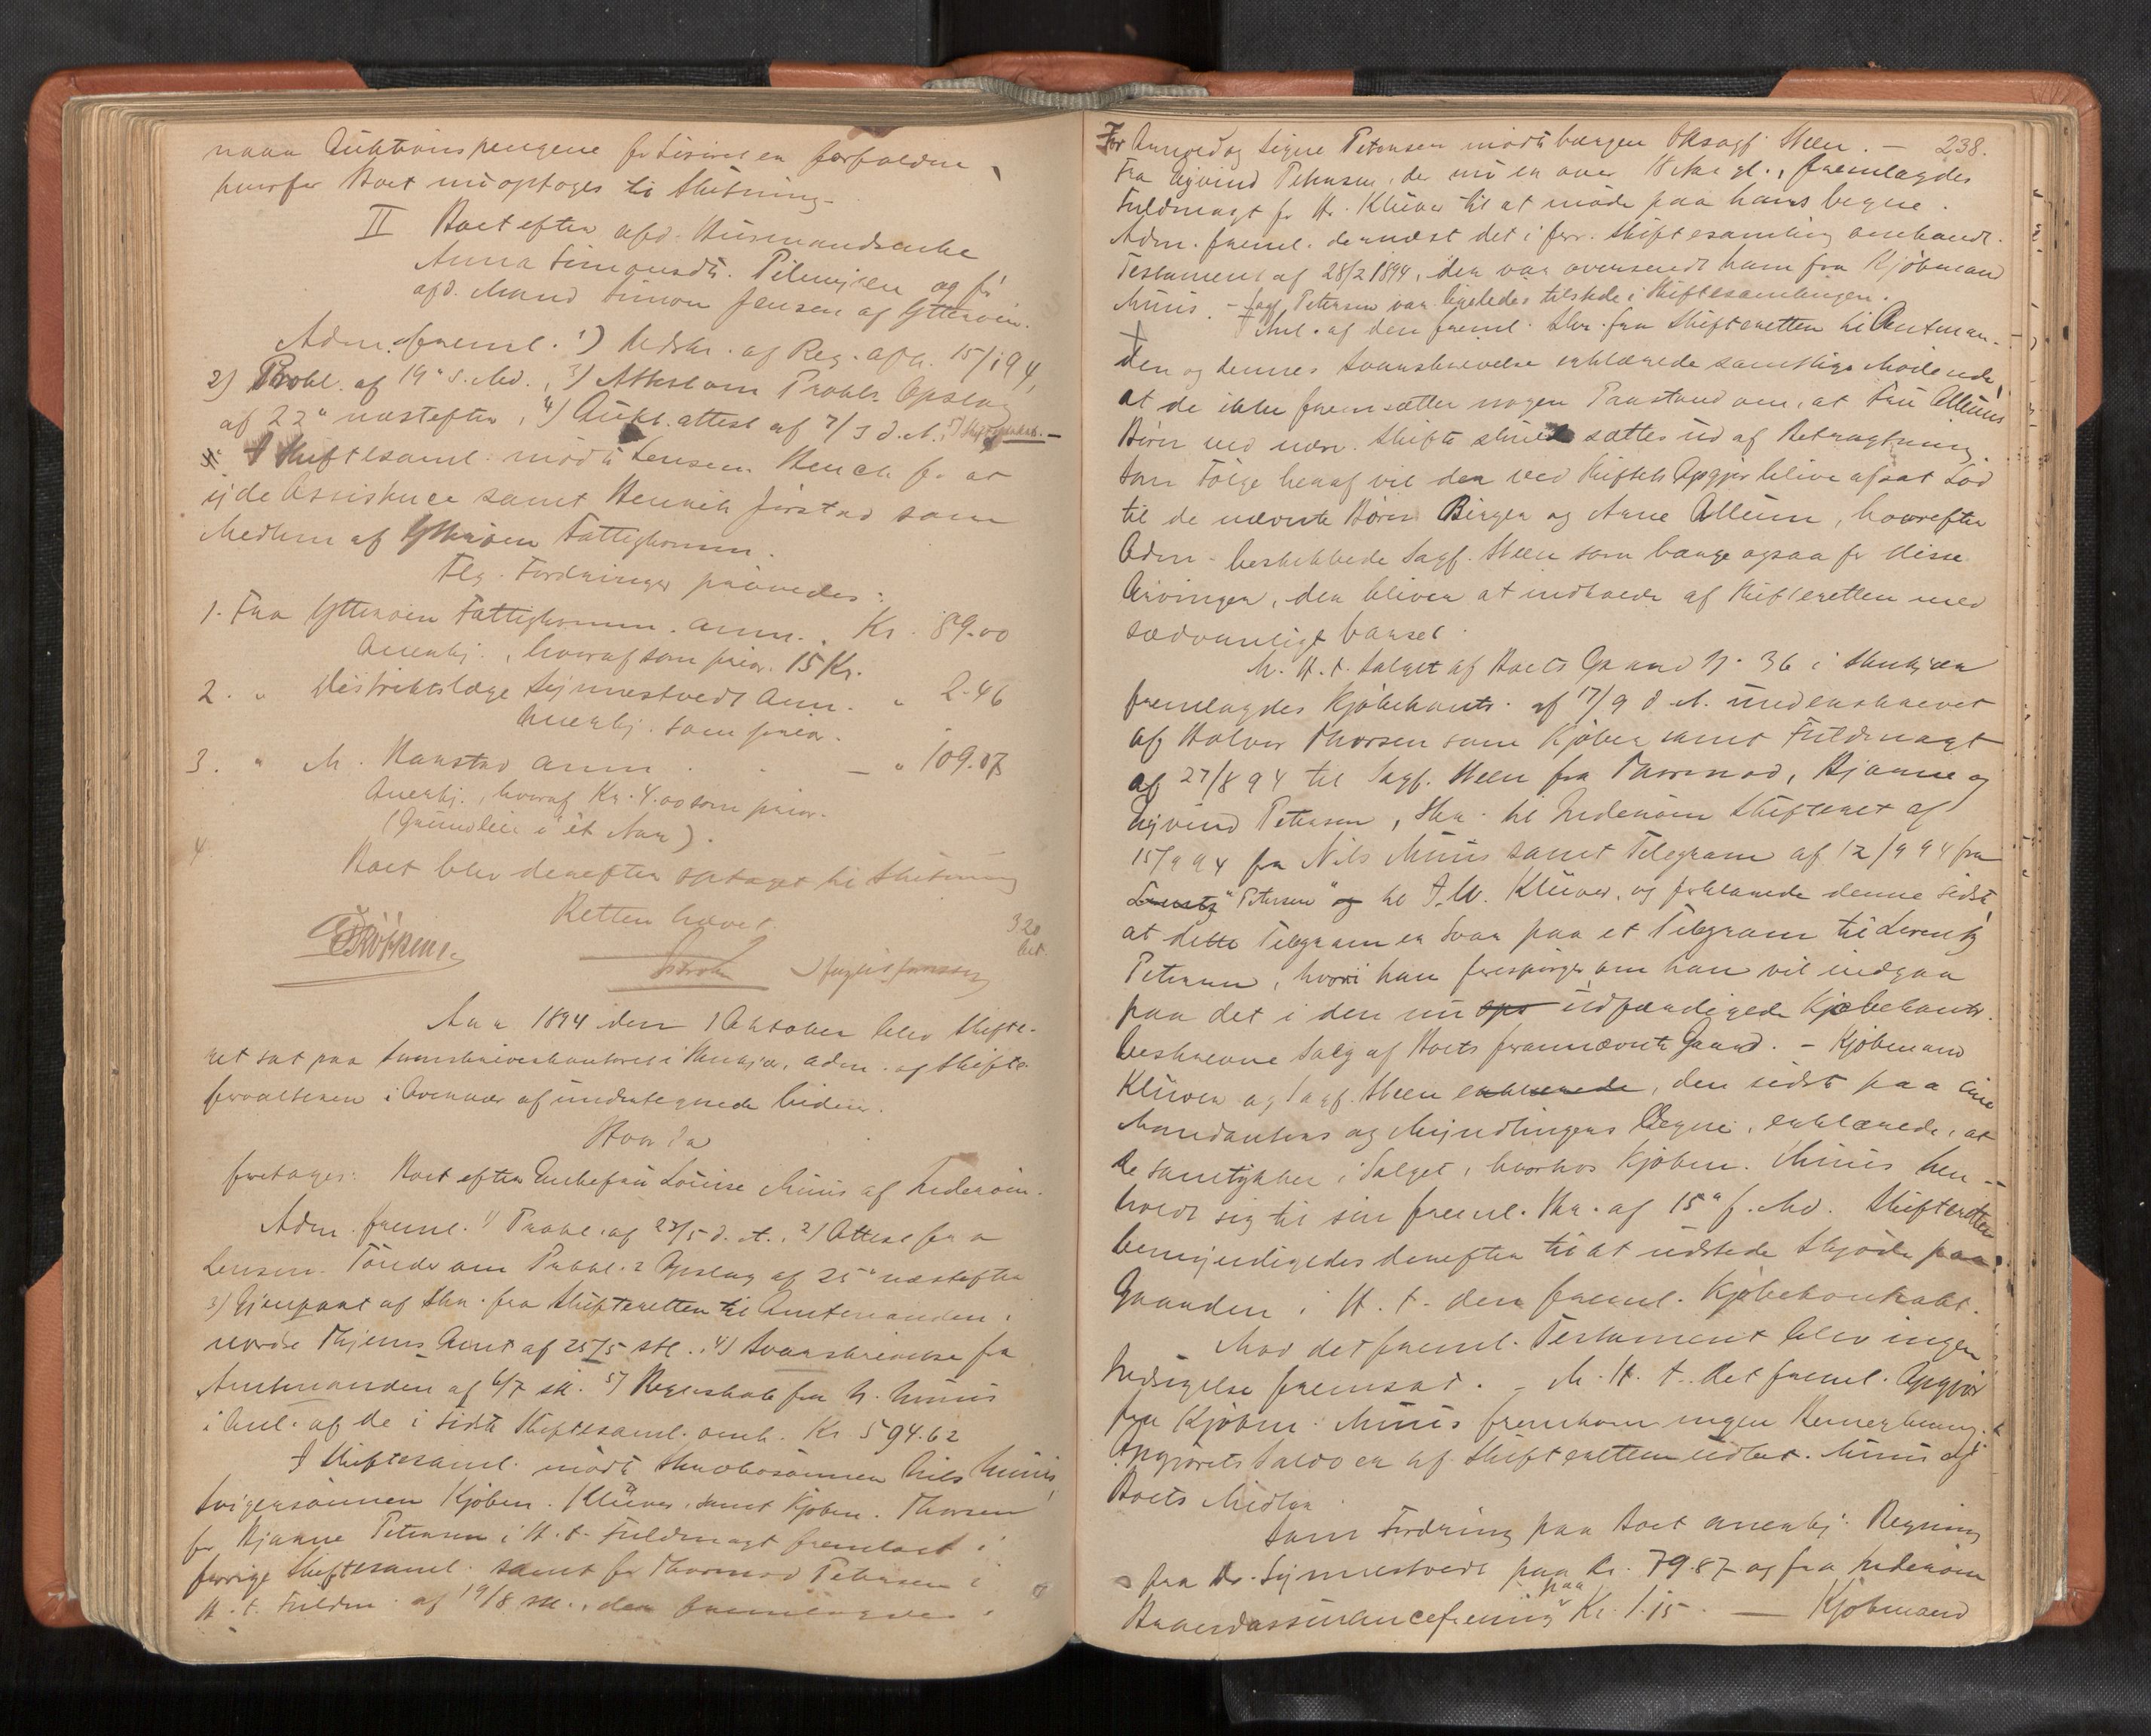 naar Auktionspengene for Løsøret er forfaldne,
hvorfor Boet nu optoges til Slutning.
II Boet efter afd. Husmandsenke
Anna Simonsdtr. Pilmyren og før
afd. Mand Simon Jensen af Ytterøen.
Adm. freml. 1) Udskr. af Reg. afh. 15/1 94,
2) Prokl. af 19' s. Md., 3) Attest om Prokls. Opslag
af 22' næstefter, 4) Aukt. attest af 7/3 d. A.,
I Skiftesaml. mødte Lensm. Bench for at
yde Assistance samt Henrik Jørstad som
Medlem af Ytterøen Fattigkomm.
Flg. Fordringer prøvedes:
1. Fra Ytterøen Fattigkomm. anm. Kr. 89.00
Anerkj., hvoraf som prior. 15 Kr.
2. " Distriktslæge Lynnestvedt anm. " 2.46
Anerkj. som prior.
3. " M. Naustad anm. — " 109.07
Anerkj., hvoraf Kr. 4.00 som prior.
(Grundleie i et Aar).
4.
Boet blev derefter optaget til Slutning
Retten hævet.
320
Aar 1894 den 1 Oktober blev Skifte-
ret sat paa Sorenskriverkontoret i Stenkjær, adm. af Skifte-
forvalteren i Overvær af undertegnede Vidner.
Hvorda
foretoges: Boet efter Enkefru Louise Muus af Inderøen.
Adm. freml. 1) Prokl. af 23/5 d. A., 2) Attest fra
Lensm. Tønder om Prokl.s Opslag af 25' næstefter
3) Gjenpart af Skr. fra Skifteretten til Amtmanden i
nordre Thjems Amt af 25/5 sttl. 4) Svarskrivelse fra
Amtmanden af 6/7 sttl. 5) Regnskab fra N. Muus
i Anl. af de i sidste Skiftesaml. omh. Kr 594.62
I Skiftesaml. mødte Stervbosønnen Nils Muus,
Svigersønnen Kjøbm. Klüver, samt Kjøbm. Thorsen
for Bjarne Petersen i H. t. Fuldmagt fremlagt i
forrige Skiftesaml. samt for Thormod Petersen i
H. t. Fuldm. af 19/8 sttl., der fremlagdes.
238.
For Annæ og Signe Petersen mødte værgen Oksagf. Steen. —
Fra Øjvind Petersen, der nu er over 18 Aar gl., fremlagdes
Fuldmagt for Hr. Klüver til at møde paa hans Vegne.
Adm. freml. dernæst det i forr. Skiftesamling omhandl.
Testament af 28/2 1894, der var oversendt ham fra Kjøbmand
Muus. — Sagf. Petersen var ligeledes tilstede i Skiftesamlingen.
I Anl. af den freml. Skr. fra Skifteretten til Amtman-
den og dennes Svarskrivelse erklærede samtlige Mødende,
at de ikke fremsætter nogen Paastand om, at Fru Allums
Børn ved nærv. Skifte skulde sættes ud af Betragtning.
Som Følge heraf vil der ved Skiftets Opgjør blive afsat Lod
til de nævnte Børn Birger og Anne Allum, hvorefter
Adm. beskikkede Sagf. Steen som Værge ogsaa for disse
Arvinger, der bliver at indkalde af Skifteretten med
sædvanligt Varsel.
M. H. t. Salget af Boets Gaard N. 36 i Stenkjær
fremlagdes Kjøbekontr. af 17/9 d. A. underskrevet
af Halvor Thorsen som Kjøber samt Fuldmagt
af 27/8 94 til Sagf. Steen fra Thormod, Bjarne og
Øjvind Petersen, Skr. til Inderøen Skifteret af
15/9 94 fra Nils Muus samt Telegram af 12/9 94 fra
Lorentz "Petersen" og til J. M. Klüver, og forklarede denne sidste,
at dette Telegram er Svar paa et Telegram til Lorentz
Petersen, hvori han forespørges om han vil indgaa
paa det i den nu ops udfærdigede Kjøbekontr.
beskrevne Salg af Boets forannævnte Gaard. — Kjøbmand
Klüver og Sagf. Steen erklærede, den sidste paa sine
Mandanters og Myndlingers Vegne, erklærede, at
de samtykker i Salget, hvorhos Kjøbm. Muus hen-
holdt sig til sin freml. Skr. af 15' f. Md. Skifteretten
bemyndigedes derefter til at udstede Skjøde paa
Gaarden i H. t. den freml. Kjøbekontrakt.
Mod det freml. Testament blev ingen
Indsigelse fremsat. — M. H. t. det freml. Opgjør
fra Kjøbm. Muus fremkom ingen Bemerkning.
Opgjørets Saldo er af Skifteretten udbet. Muus af
Boets Midler.
Som Fordring paa Boet anerkj. Regning
fra Dr. Lynnestvedt paa Kr. 79.87 og fra Inderøen
Brandassuranceforening paa Kr. 1.15. — Kjøbmand